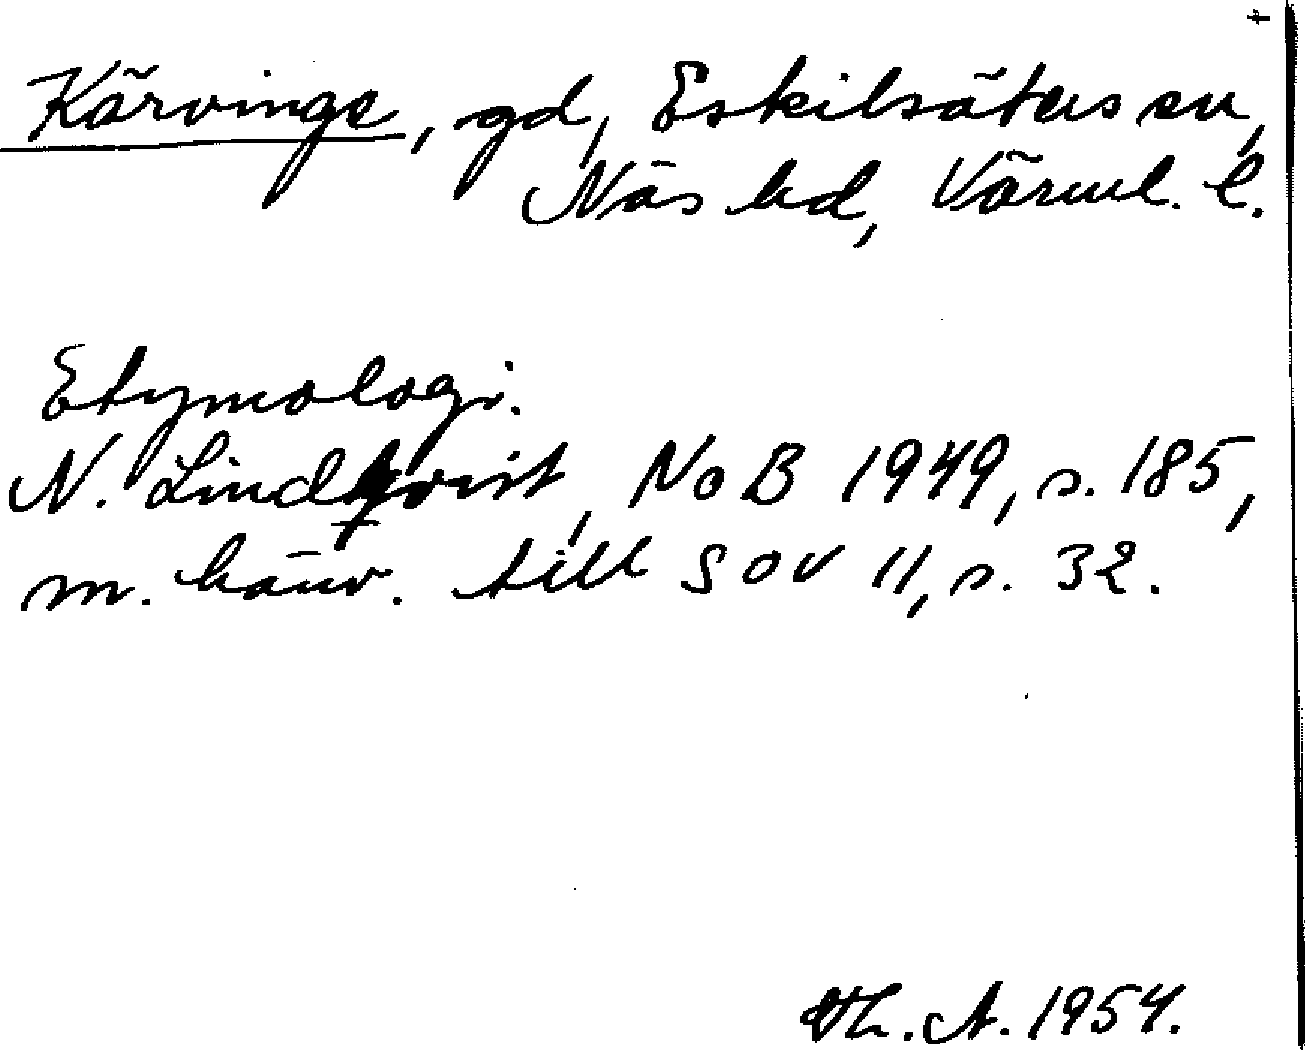 Kärvinge, gd, Eskilsäters sn,
Näs hd, Värml. l.
Etymologi.
N. Lindqvist, NoB 1949, s. 185,
m. hänv. till SOV 11, s. 32.
Th. A. 1954.